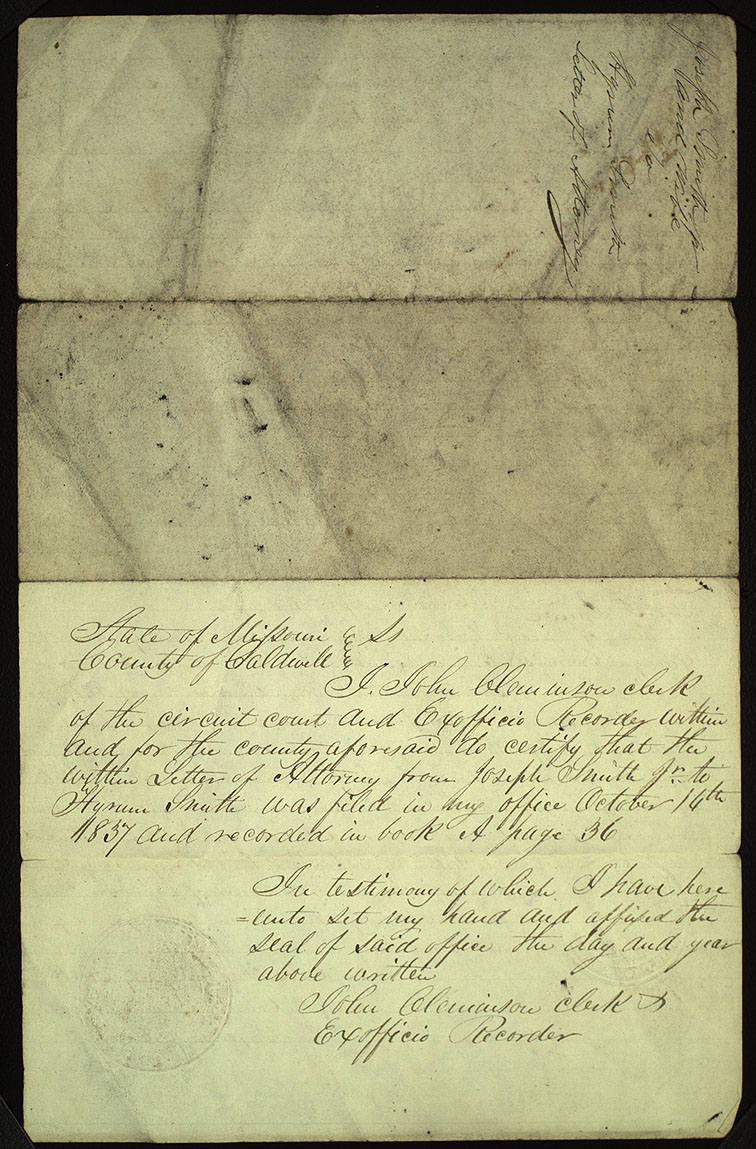 Joseph Smith jr
and wife
to
Hyrum Smith
Letter of Attorney
State of Missouri } Ss
County of Caldwell }
I. John Cleminson clerk
of the circuit court and Exofficio Recorder within
and for the county aforesaid do certify that the
within Letter of Attorney from Joseph Smith Jr. to
Hyrum Smith was filed in my office October 14th
1837 and recorded in book A page 36
In testimony of which I have here
=unto set my hand and affixed the
seal of said office the day and year
above written
John Cleminson clerk &
Exofficio Recorder